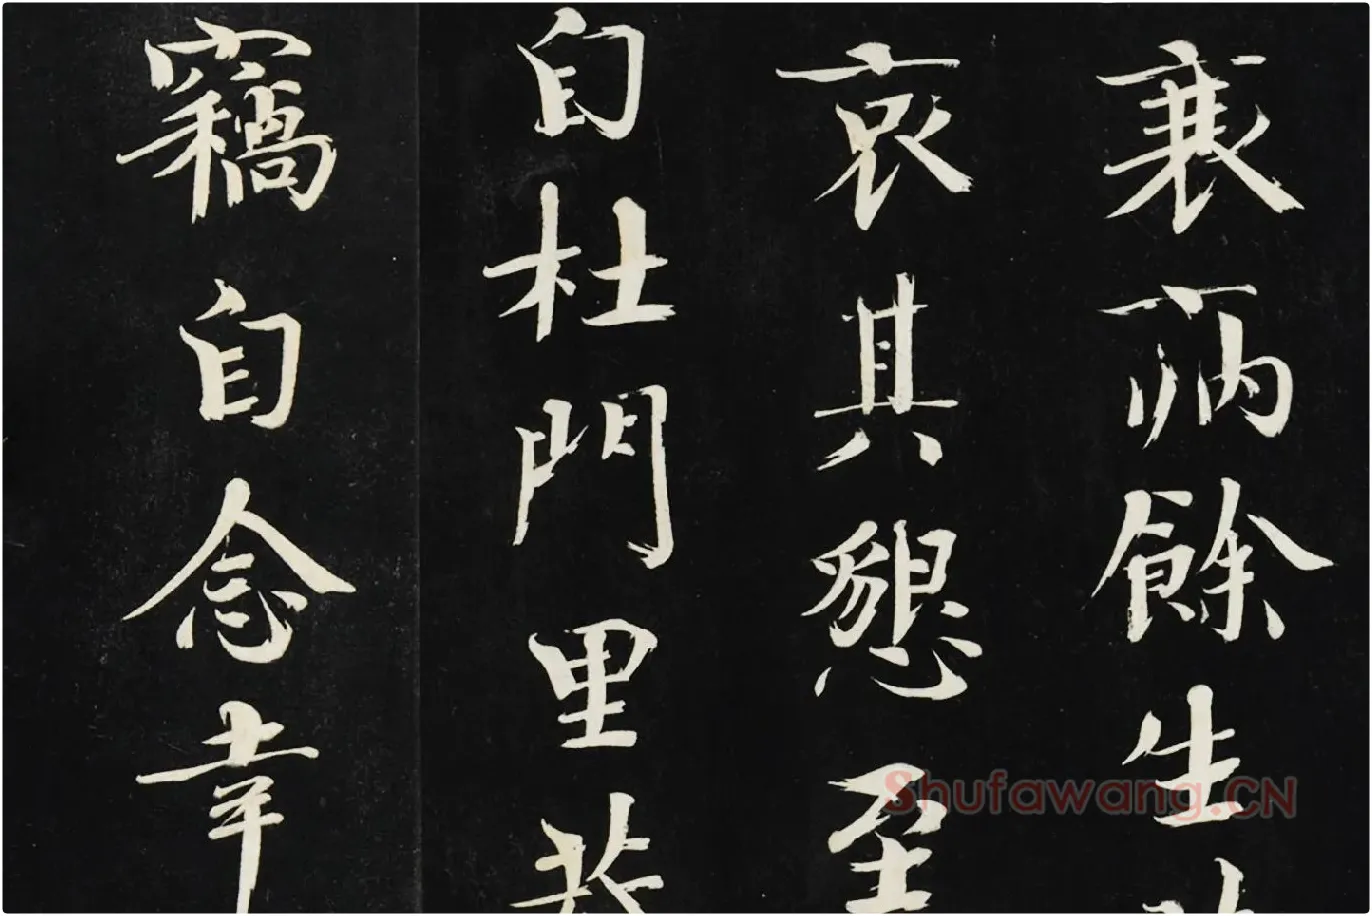 衰病餘生
哀其懇至
自杜門里
竊自念幸
Shufawang.CN